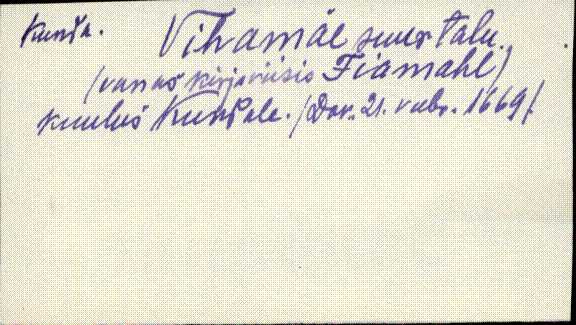 Kunda. Vihamäe suur talu.
(vanas kirjaviisis Fiamahl)
kuulus Kundale. (Dor. 21. vebr. 1669).